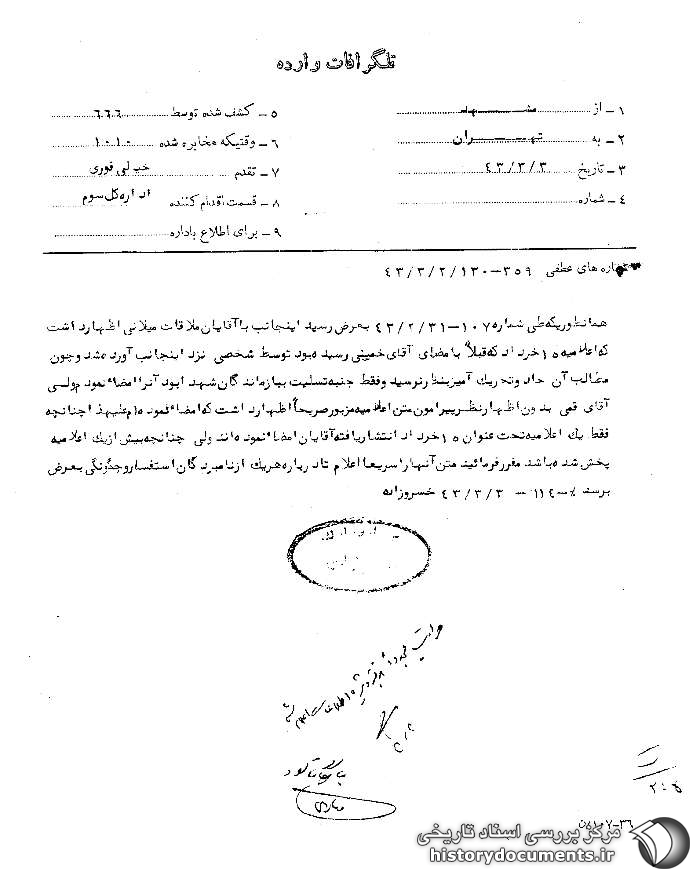 تلگرافات وارده
۱- از مشهد
۲- به تهران
۳- تاریخ ۴۳/۳/۳
۴- شماره
۵- کشف شده توسط ۶۶۶
۶- وقتیکه مخابره شده ۱۰۱۰
۷- تقدم خیلی فوری
۸- قسمت اقدام کننده اداره کل سوم
۹- برای اطلاع باداره
شماره های عطفی ۳۵۹-۴۳/۳/۲/۱۳۰
همانطوریکه طی شماره ۱۰۷-۴۳/۲/۳۱ بعرض رسید اینجانب با آقایان ملاقات میلانی اظهار داشت
که اعلامیه ۱۵ خرداد که قبلاً با مضای آقای خمینی رسیده بود توسط شخصی نزد اینجانب آورده شد و چون
مطالب آن حاد و تحریک آمیز بنظر نرسید و فقط جنبه تسلیت ببازماندگان شهدا بود آنرا امضاء نمودم ولی
آقای قمی بدون اظهار نظر پیرامون متن اعلامیه مزبور صریحاً اظهار داشت که امضاء نموده ام علیهذا چنانچه
فقط یک اعلامیه تحت عنوان ۱۵ خرداد انتشار یافته آقایان امضاء نموده اند ولی چنانچه بیش از یک اعلامیه
پخش شده باشد مقرر فرمائید متن آنها را سریعا اعلام تا درباره هریک از نامبردگان استفسار و چگونگی بعرض
برسد ۱۱۴- ۴۳/۳/۳ خسروزاده
مرکز بررسی اسناد تاریخی
historydocuments.ir